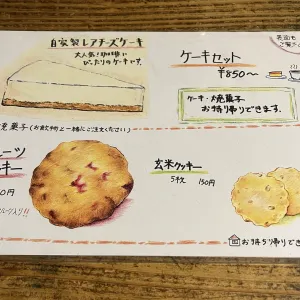 自家製レアチーズケーキ
大人気!珈琲に
ぴったりのケーキです。
ケーキセット
¥850〜
ケーキ・焼菓子
お持ち帰りできます。
焼菓子(お飲物と一緒にご注文ください)
ーツ
キー
0円
玄米クッキー
5枚 150円
お持ち帰りでき